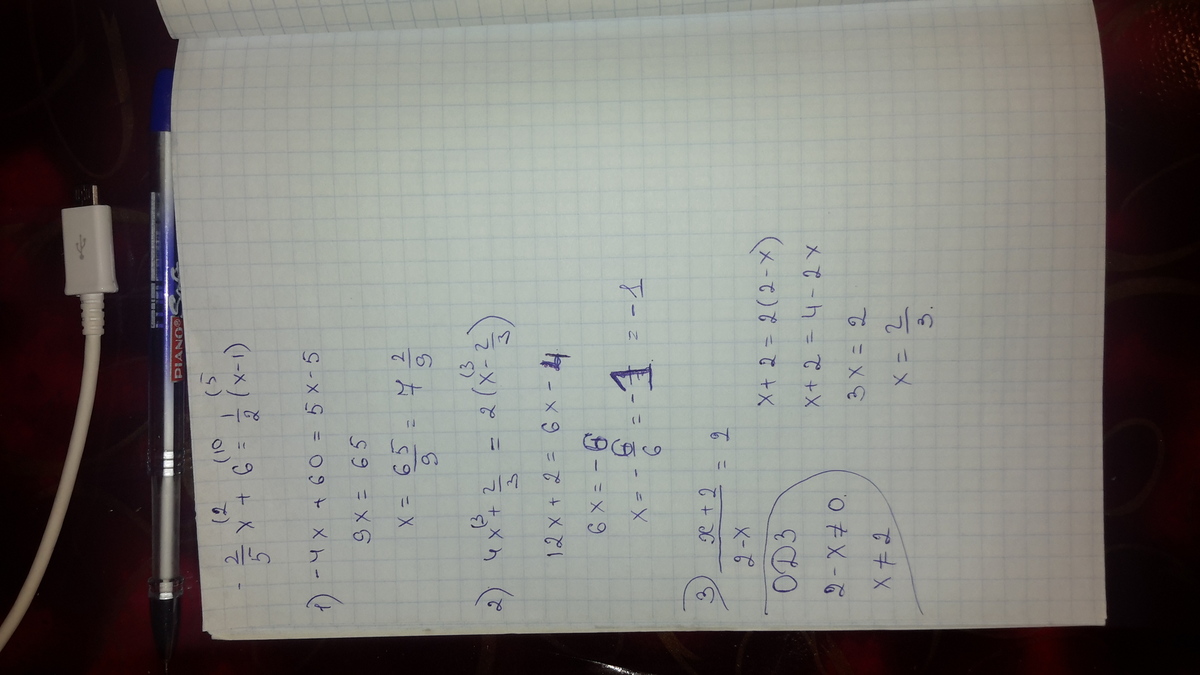 - 2/5 x + 6 = 1/2 (x-1) (2 (10 (5
1) -4x + 60 = 5x-5
9x = 65
x = 65/9 = 7 2/9
2) 4x + 2/3 = 2(x - 2/3) (3 (3
12x + 2 = 6x - 4
6x = -6
x = - 6/6 = -1 = -1
3) x+2/2-x = 2
ОДЗ
2-x ≠ 0.
x ≠ 2
x+2 = 2(2-x)
x+2 = 4-2x
3x = 2
x = 2/3.
PIANO®